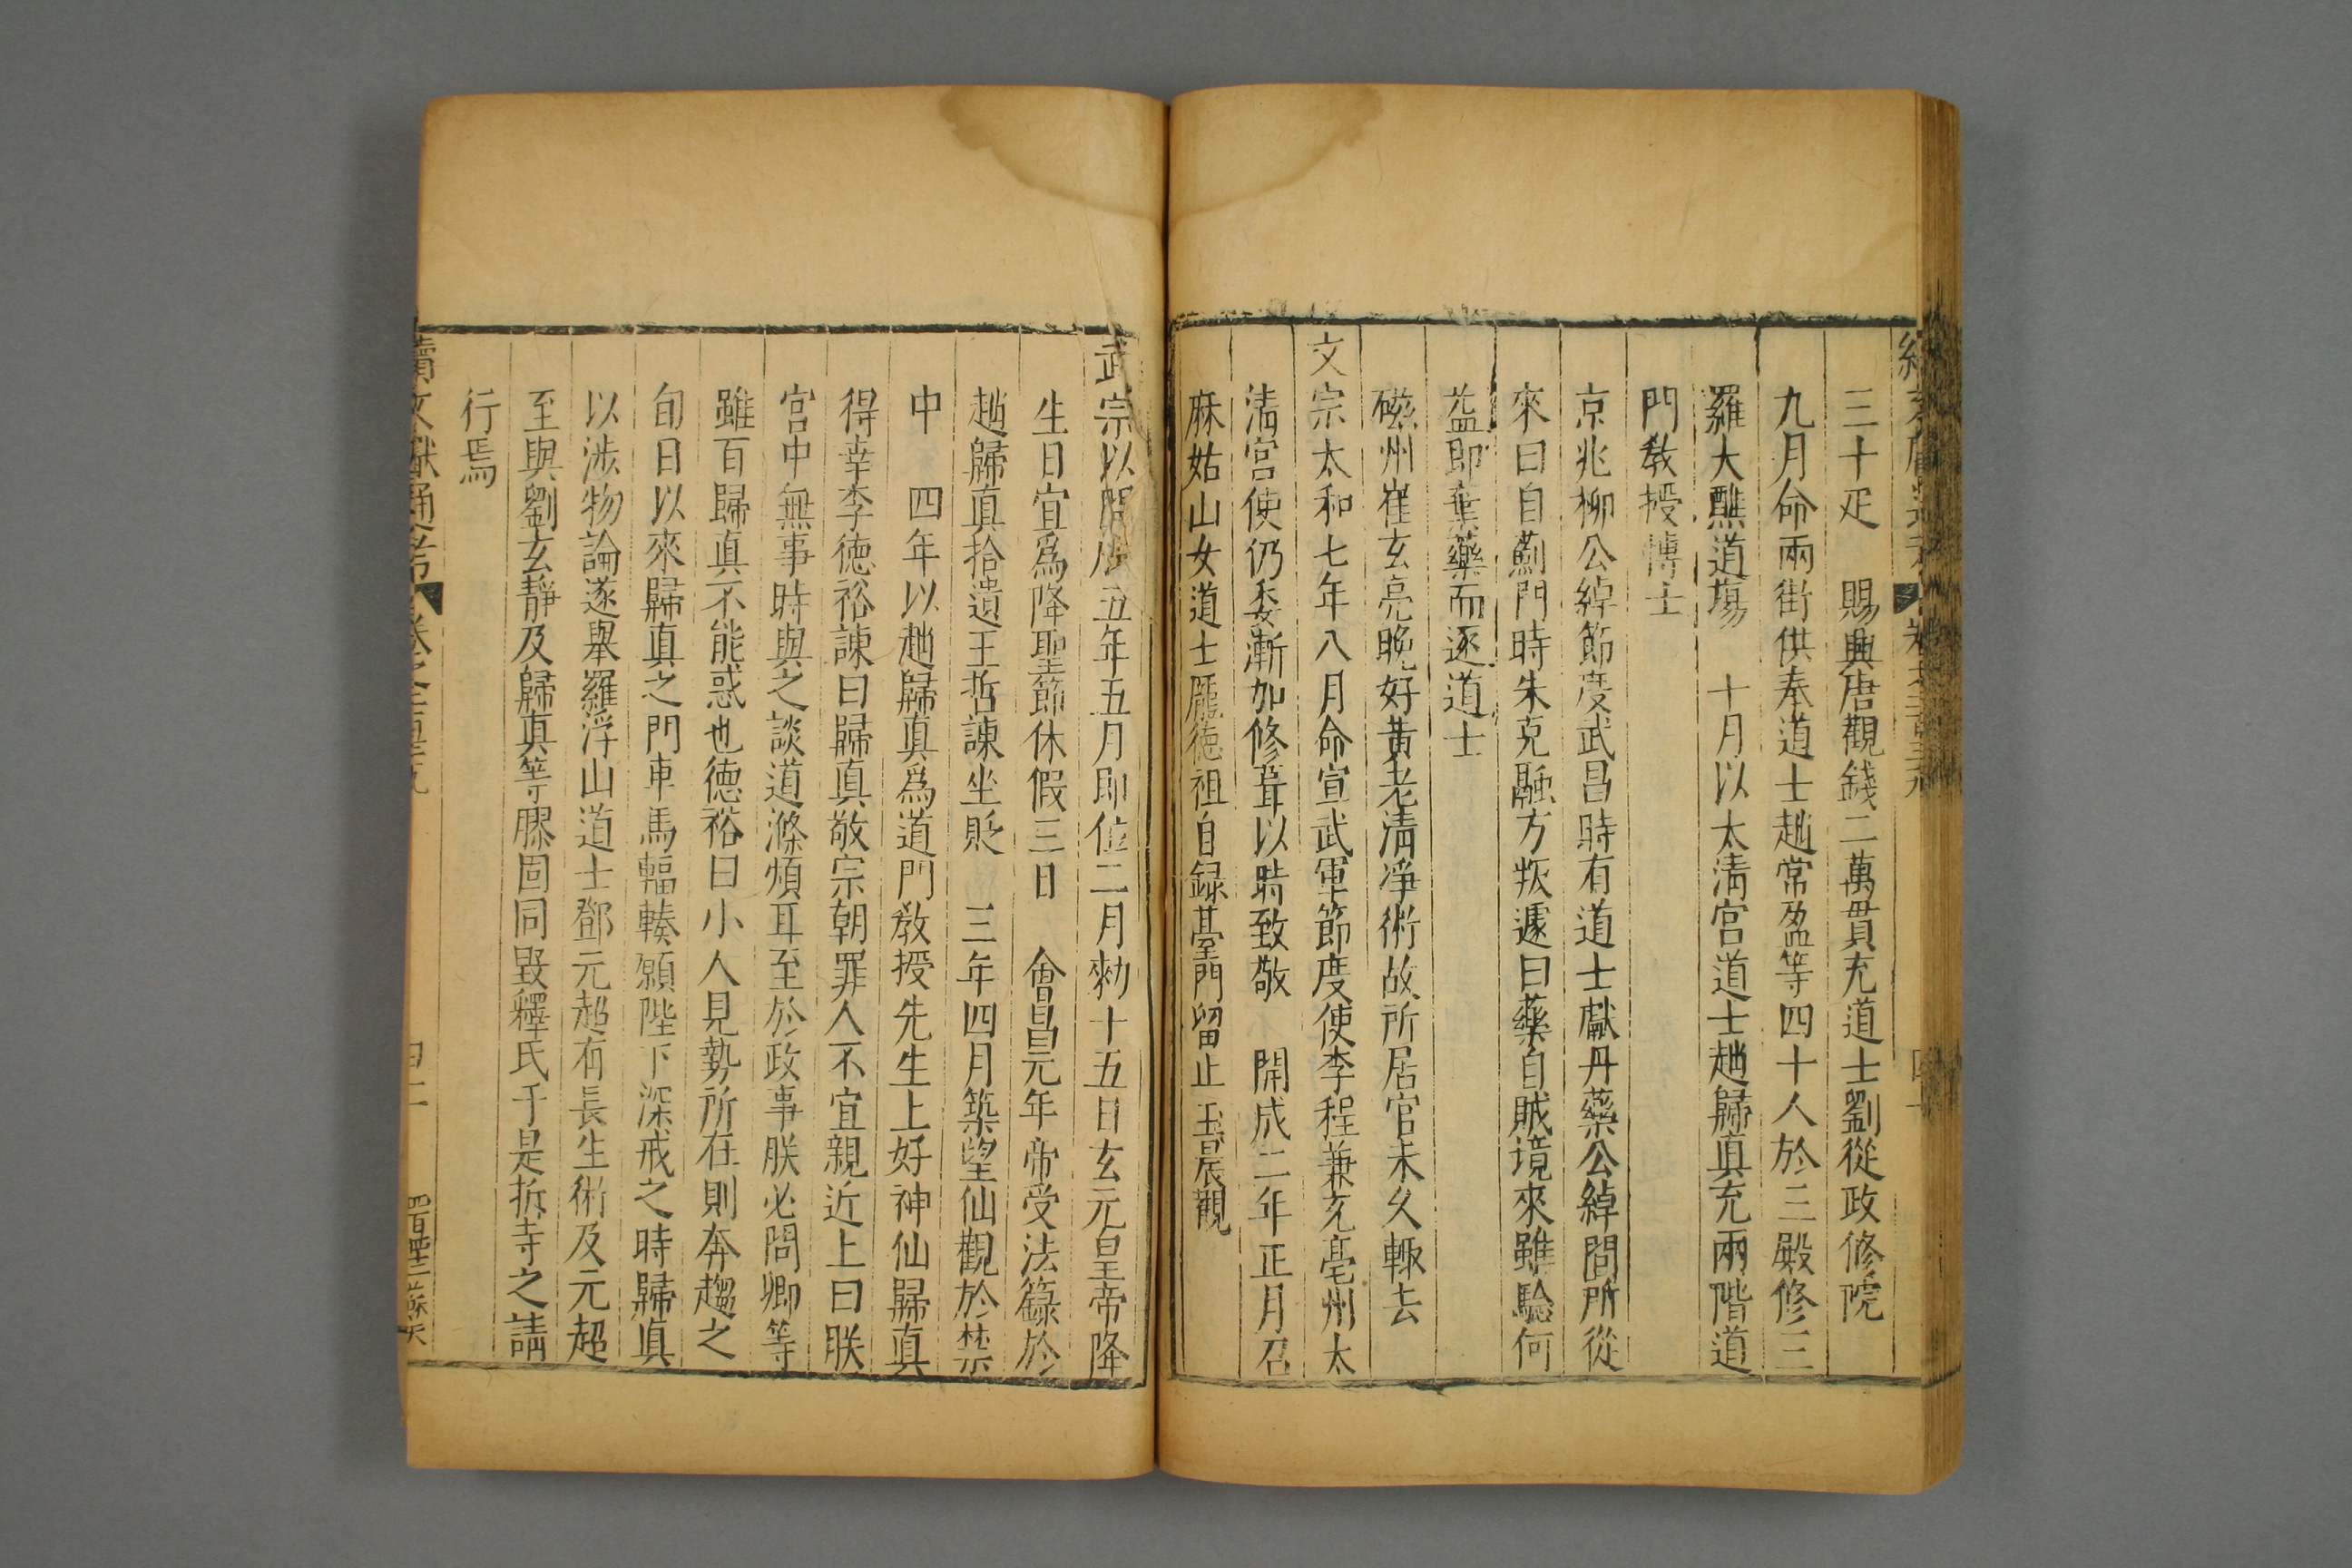 三十疋　賜興唐觀錢二萬貫充道士劉從政修院
九月命兩街供奉道士趙常盈等四十人於三殿修三
羅大醮道場　十月以太淸宮道士趙歸真充兩階道
門教授博士
京兆柳公綽節度武昌時有道士獻丹藥公綽問所從
來曰自薊門時朱克融方叛遽曰藥自賊境來雖驗何
益即棄藥而逐道士
磁州崔玄亮晚好黃老淸淨術故所居官未久輒去
文宗太和七年八月命宣武軍節度使李程兼充亳州太
淸宮使仍委漸加修葺以時致敬　開成二年正月召
麻姑山女道士龐德祖自録臺門留止玉晨觀
武宗以開成五年五月即位二月勑十五日玄元皇帝降
生日宜爲降聖節休假三日　會昌元年帝受法籙於
趙歸真拾遺王哲諫坐貶　三年四月築望仙觀於禁
中　四年以趙歸真爲道門教授先生上好神仙歸真
得幸李德裕諫曰歸真敬宗朝罪人不宜親近上曰朕
宮中無事時與之談道滌煩耳至於政事朕必問卿等
雖百歸真不能惑也德裕曰小人見勢所在則奔趨之
旬日以來歸真之門車馬輻輳願陛下深戒之時歸真
以涉物論遂舉羅浮山道士鄧元超有長生術及元超
至與劉玄靜及歸真等膠固同毀釋氏于是拆寺之請
行焉
續文獻通考　卷之二百四十九　四十一